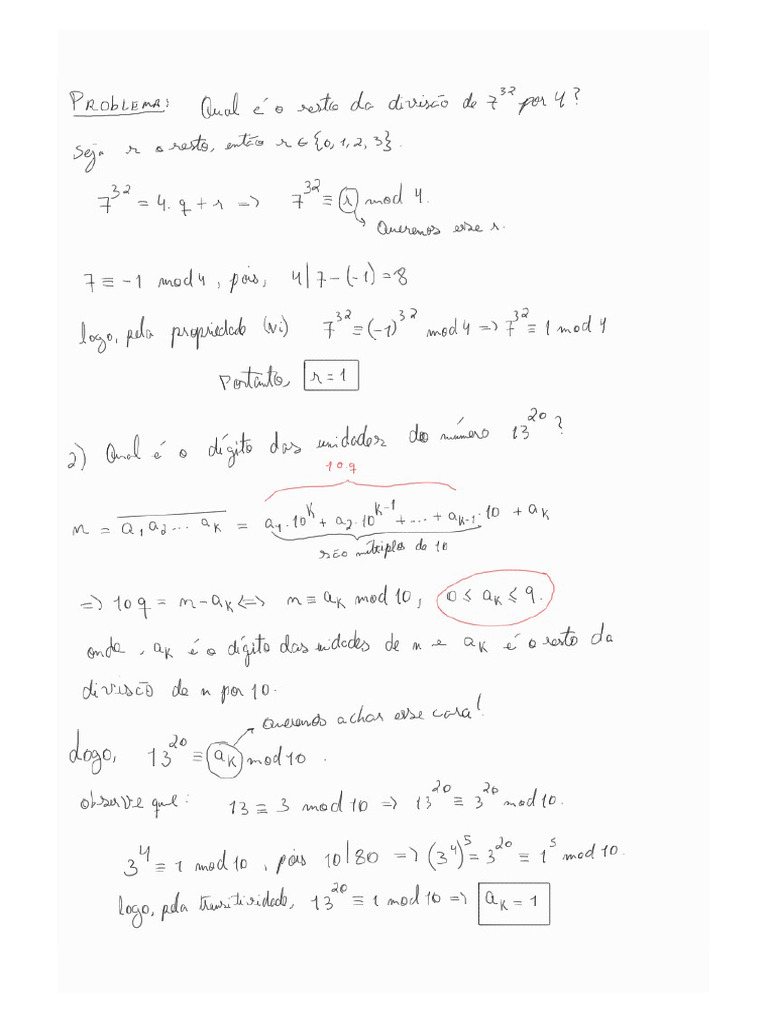 Problema: Qual é o resto da divisão de 7^32 por 4?
Seja r o resto, então r ∈ {0, 1, 2, 3}.
7^32 = 4. q + r => 7^32 ≡ r mod 4.
Queremos esse r.
7 ≡ -1 mod 4, pois, 4 | 7 - (-1) = 8
logo, pela propriedade (vi) 7^32 ≡ (-1)^32 mod 4 => 7^32 ≡ 1 mod 4
Portanto, r = 1
2) Qual é o dígito das unidades do número 13^20?
10.q
n = a_1 a_2 ... a_K = a_1.10^K + a_2.10^(K-1) + ... + a_(K-1).10 + a_K
são múltiplos de 10
=> 10q = n - a_K <=> n ≡ a_K mod 10, 0 ≤ a_K ≤ 9.
onde, a_K é o dígito das unidades de n e a_K é o resto da
divisão de n por 10.
Queremos achar esse cara!
Logo, 13^20 ≡ a_K mod 10.
observe que: 13 ≡ 3 mod 10 => 13^20 ≡ 3^20 mod 10.
3^4 ≡ 1 mod 10, pois 10 | 80 => (3^4)^5 = 3^20 ≡ 1^5 mod 10.
logo, pela transitividade, 13^20 ≡ 1 mod 10 => a_K = 1